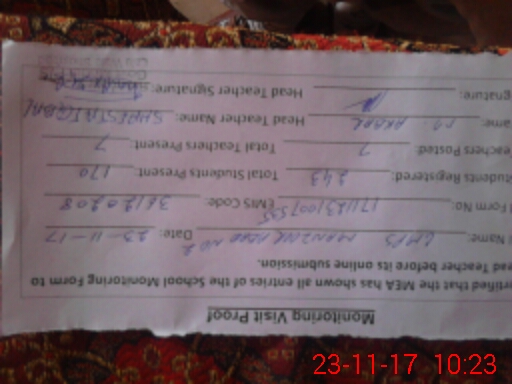 Monitoring Visit Proof
rtified that the MEA has shown all entries of the School Monitoring Form to
ead Teacher before its online submission.
l Name: GMPS MANZOOR ABAD NO 2 Date: 23-11-17
l Form No: EMIS Code: 36120208
tudents Registered: 243 Total Students Present: 170
eachers Posted: 7 Total Teachers Present: 7
ame: M. AKBAL Head Teacher Name:
gnature: Head Teacher Signature:
23-11-17 10:23